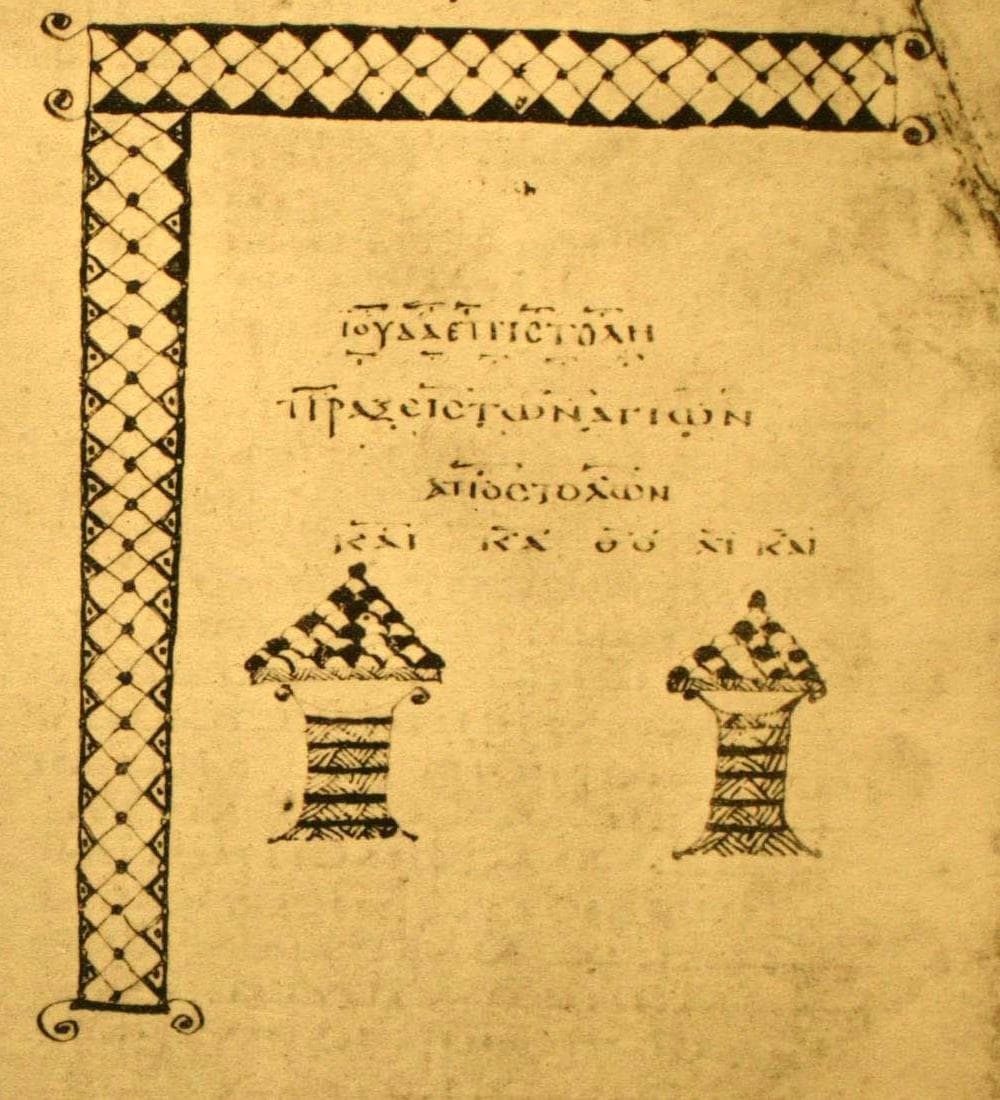 ΙΟΥΔΑΕΠΙϹΤΟΛΗ
ΠΡΑΞΕΙϹΤΩΝΑΓΙΩΝ
ΑΠΟϹΤΟΛΩΝ
ΚΑΙ ΚΑ ΘΟ ΛΙ ΚΑΙ